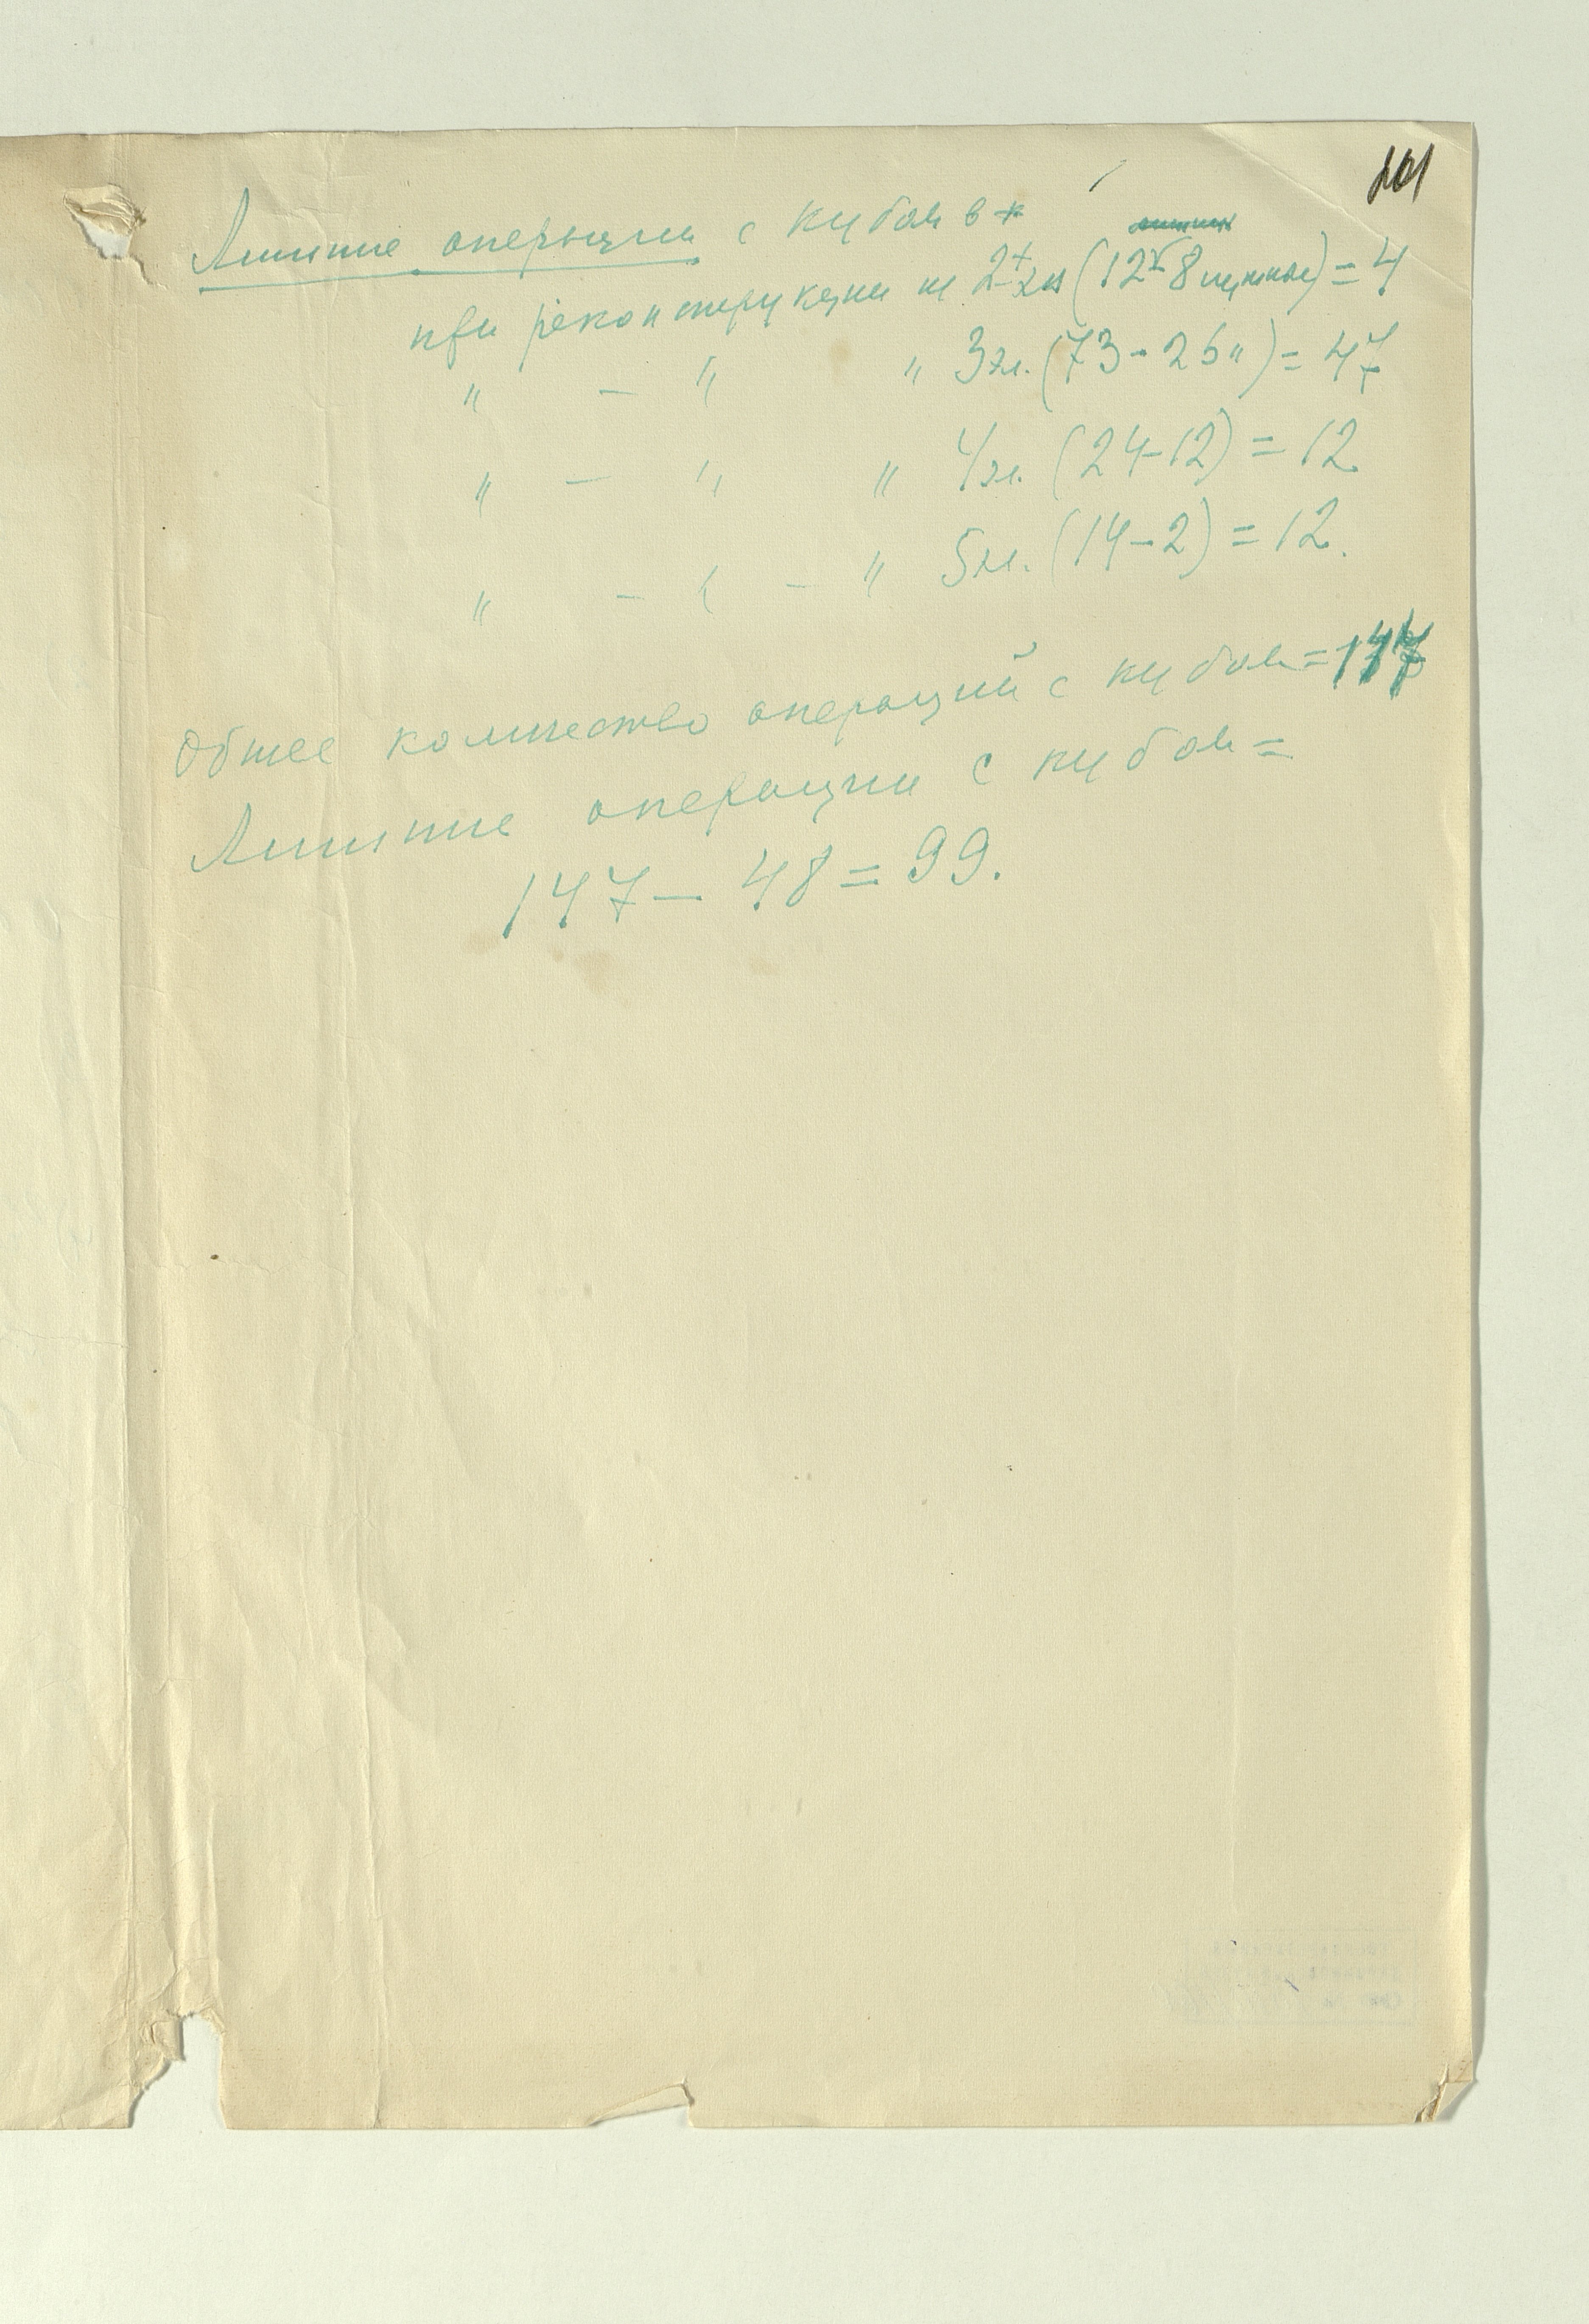 101
Лишние операции с кубом в
при реконструкции из 2х эл (12 - 8 нужных) = 4
" — " " 3 эл. (73 - 26 ") = 47
" — " " 4 эл. (24 - 12) = 12
" — " — " 5 эл. (14 - 2) = 12.
Общее количество операций с кубом = 147
Лишние операции с кубом =
147 — 48 = 99.